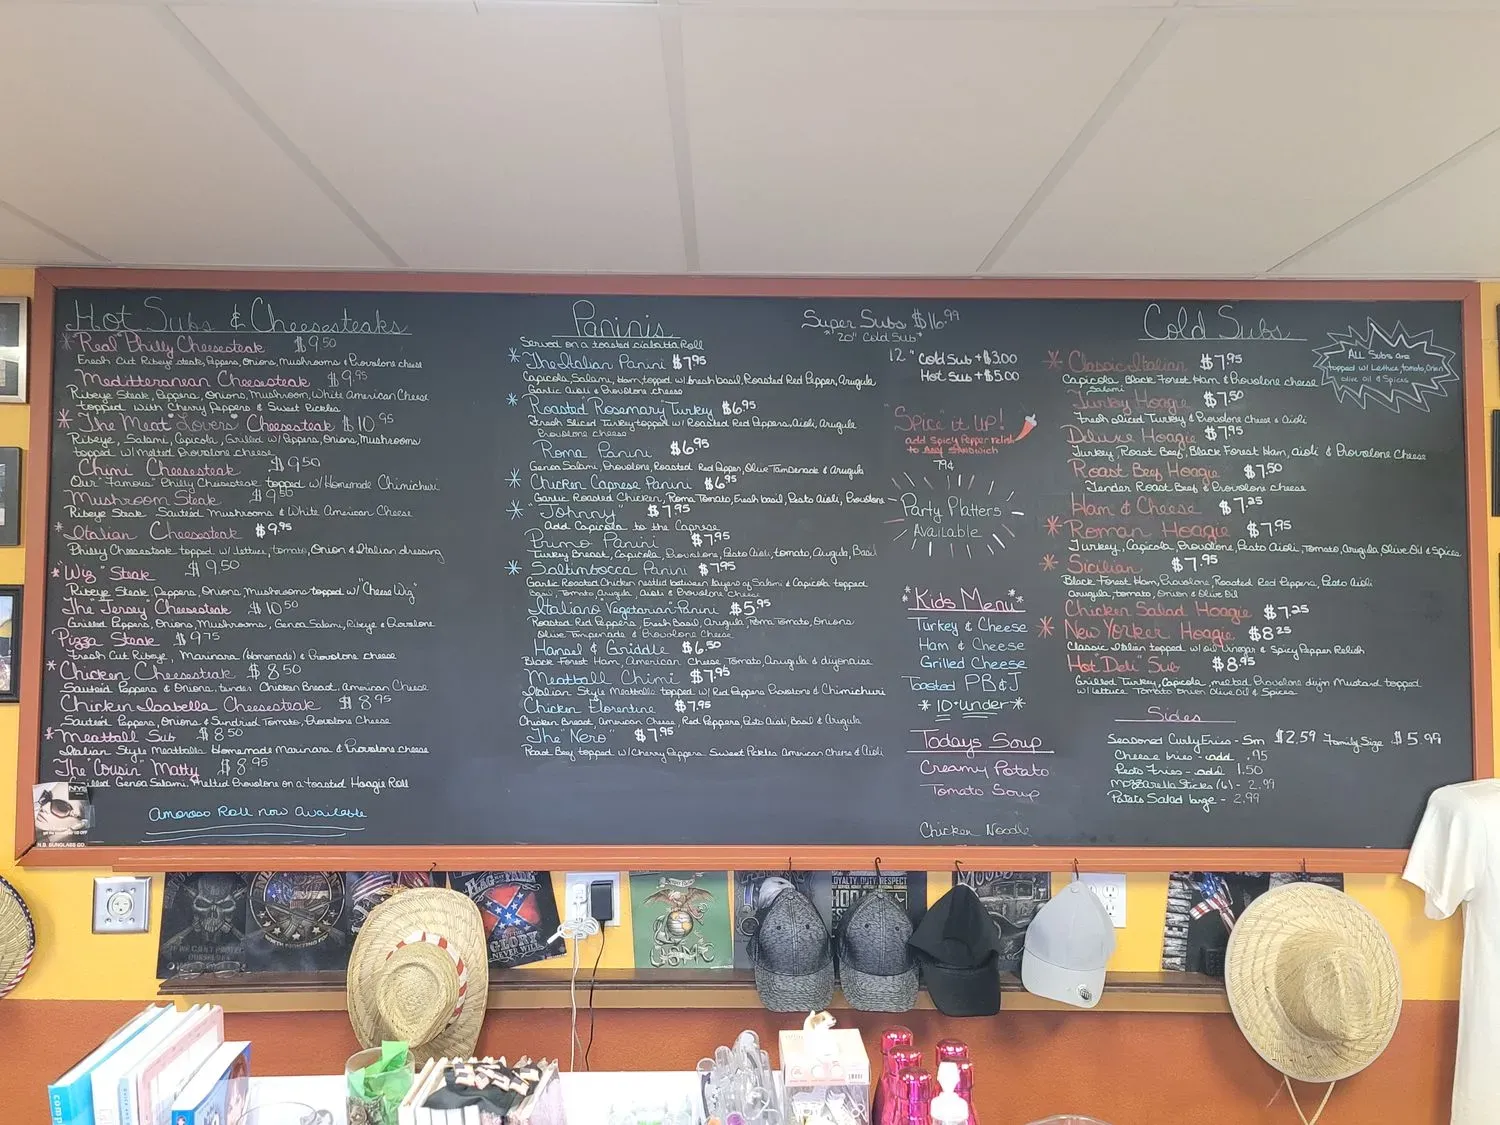 Hot Subs & Cheesesteaks
*"Real" Philly Cheesesteak $9.50
Fresh Cut Ribeye steak, Peppers, Onions, Mushrooms & Provolone cheese
Meditteranean Cheesesteak $9.95
Ribeye Steak, Peppers, Onions, Mushroom, White American Cheese
topped with Cherry Peppers & Sweet Pickles
*The Meat "Lovers" Cheesesteak $10.95
Ribeye, Salami, Capicola, Grilled w/ Peppers, Onions, Mushrooms
topped w/ melted Provolone cheese
Chimi Cheesesteak $9.50
Our "Famous" Philly Cheesesteak topped w/ Homemade Chimichuri
Mushroom Steak $9.50
Ribeye Steak Sautéed Mushrooms & White American Cheese
*Italian Cheesesteak $9.95
Philly Cheesesteak topped w/ lettuce, tomato, Onion & Italian dressing
*"Wig" Steak $9.50
Ribeye Steak, Peppers, Onions, Mushrooms topped w/ "Cheese Wig"
The "Jersey" Cheesesteak $10.50
Grilled Peppers, Onions, Mushrooms, Genoa Salami, Ribeye & Provolone
Pizza Steak $9.75
Fresh Cut Ribeye, Marinara (Homemade) & Provolone cheese
*Chicken Cheesesteak $8.50
Sautéed Peppers & Onions, tender Chicken Breast, American Cheese
Chicken Isabella Cheesesteak $8.95
Sautéed Peppers, Onions & Sundried Tomato, Provolone Cheese
*Meatball Sub $8.50
Italian Style Meatballs Homemade Marinara & Provolone cheese
The "Cousin" Matty $8.95
Grilled Genoa Salami, Melted Provolone on a toasted Hoagie Roll
Amoroso Roll now Available
Paninis
Served on a toasted ciabatta Roll
*The Italian Panini $7.95
Capicola, Salami, Ham, topped w/ fresh basil, Roasted Red Pepper, Arugula
Garlic Aioli & Provolone cheese
*Roasted Rosemary Turkey $6.95
Fresh Sliced Turkey topped w/ Roasted Red Peppers, Aioli, Arugula
Provolone cheese
Roma Panini $6.95
Genoa Salami, Provolone, Roasted Red Pepper, Olive Tampenade & Arugula
*Chicken Caprese Panini $6.95
Garlic Roasted Chicken, Roma Tomato, Fresh basil, Pesto Aioli, Provolone
*"Johnny" $7.95
Add Capicola to the Caprese
Primo Panini $7.95
Turkey Breast, Capicola, Provolone, Pesto Aioli, tomato, Arugula, Basil
*Saltimbocca Panini $7.95
Garlic Roasted Chicken nestled between layers of Salami & Capicola topped
Basil, Tomato, Arugula, Aioli & Provolone Cheese
Italiano "Vegetarian" Panini $5.95
Roasted Red Peppers, Fresh Basil, Arugula, Roma Tomato, Onions
Olive Tampenade & Provolone Cheese
Hansel & Griddle $6.50
Black Forest Ham, American Cheese, Tomato, Arugula & dijonaise
Meatball Chimi $7.95
Italian Style Meatballs topped w/ Red Peppers Provolone & Chimichuri
Chicken Florentine $7.95
Chicken Breast, American Cheese, Red Peppers, Pesto Aioli, Basil & Arugula
The "Nero" $7.95
Roast Beef topped w/ Cherry Peppers Sweet Pickles American Cheese & Aioli
Super Subs $16.99
*20" Cold Sub*
12" Cold Sub +$3.00
Hot Sub +$5.00
"Spice it UP!
add Spicy Pepper relish
to Any SANDWICH
79¢
Party Platters
Available
*"Kids Menu"*
Turkey & Cheese
Ham & Cheese
Grilled Cheese
Toasted PB&J
*10·under*
Todays Soup
Creamy Potato
Tomato Soup
Chicken Noodle
Cold Subs
ALL Subs are
topped w/ Lettuce, tomato, Onion
Olive Oil & Spices
*Classic Italian $7.95
Capicola, Black Forest Ham & Provolone cheese
Salami
Turkey Hoagie $7.50
Fresh sliced Turkey & Provolone Cheese & Aioli
Deluxe Hoagie $7.95
Turkey, Roast Beef, Black Forest Ham, aioli & Provolone Cheese
Roast Beef Hoagie $7.50
Tender Roast Beef & Provolone cheese
Ham & Cheese $7.25
*Roman Hoagie $7.95
Turkey, Capicola, Provolone, Pesto Aioli, Tomato, Arugula, Olive Oil & Spices
*Sicilian $7.95
Black Forest Ham, Provolone, Roasted Red Peppers, Pesto Aioli
Arugula, tomato, Onion & Olive Oil
Chicken Salad Hoagie $7.25
*New Yorker Hoagie $8.25
Classic Italian topped w/ oil Vinegar & Spicy Pepper Relish
Hot "Deli" Sub $8.95
Grilled Turkey, Capicola, melted Provolone dijon Mustard topped
w/ lettuce Tomato Onion Olive Oil & Spices
Sides
Seasoned Curly Fries - Sm $2.59 Family Size $5.99
Cheese fries - add .95
Pesto Fries - add 1.50
Mozzarella Sticks (6) - 2.99
Potato Salad large - 2.99
NYS
N.B. SUNGLASS CO.
FLAG
GLORY
NEVER WILL
USMC
LOYALTY DUTY RESPECT
IF WE CAN'T PROTECT
OURSELVES